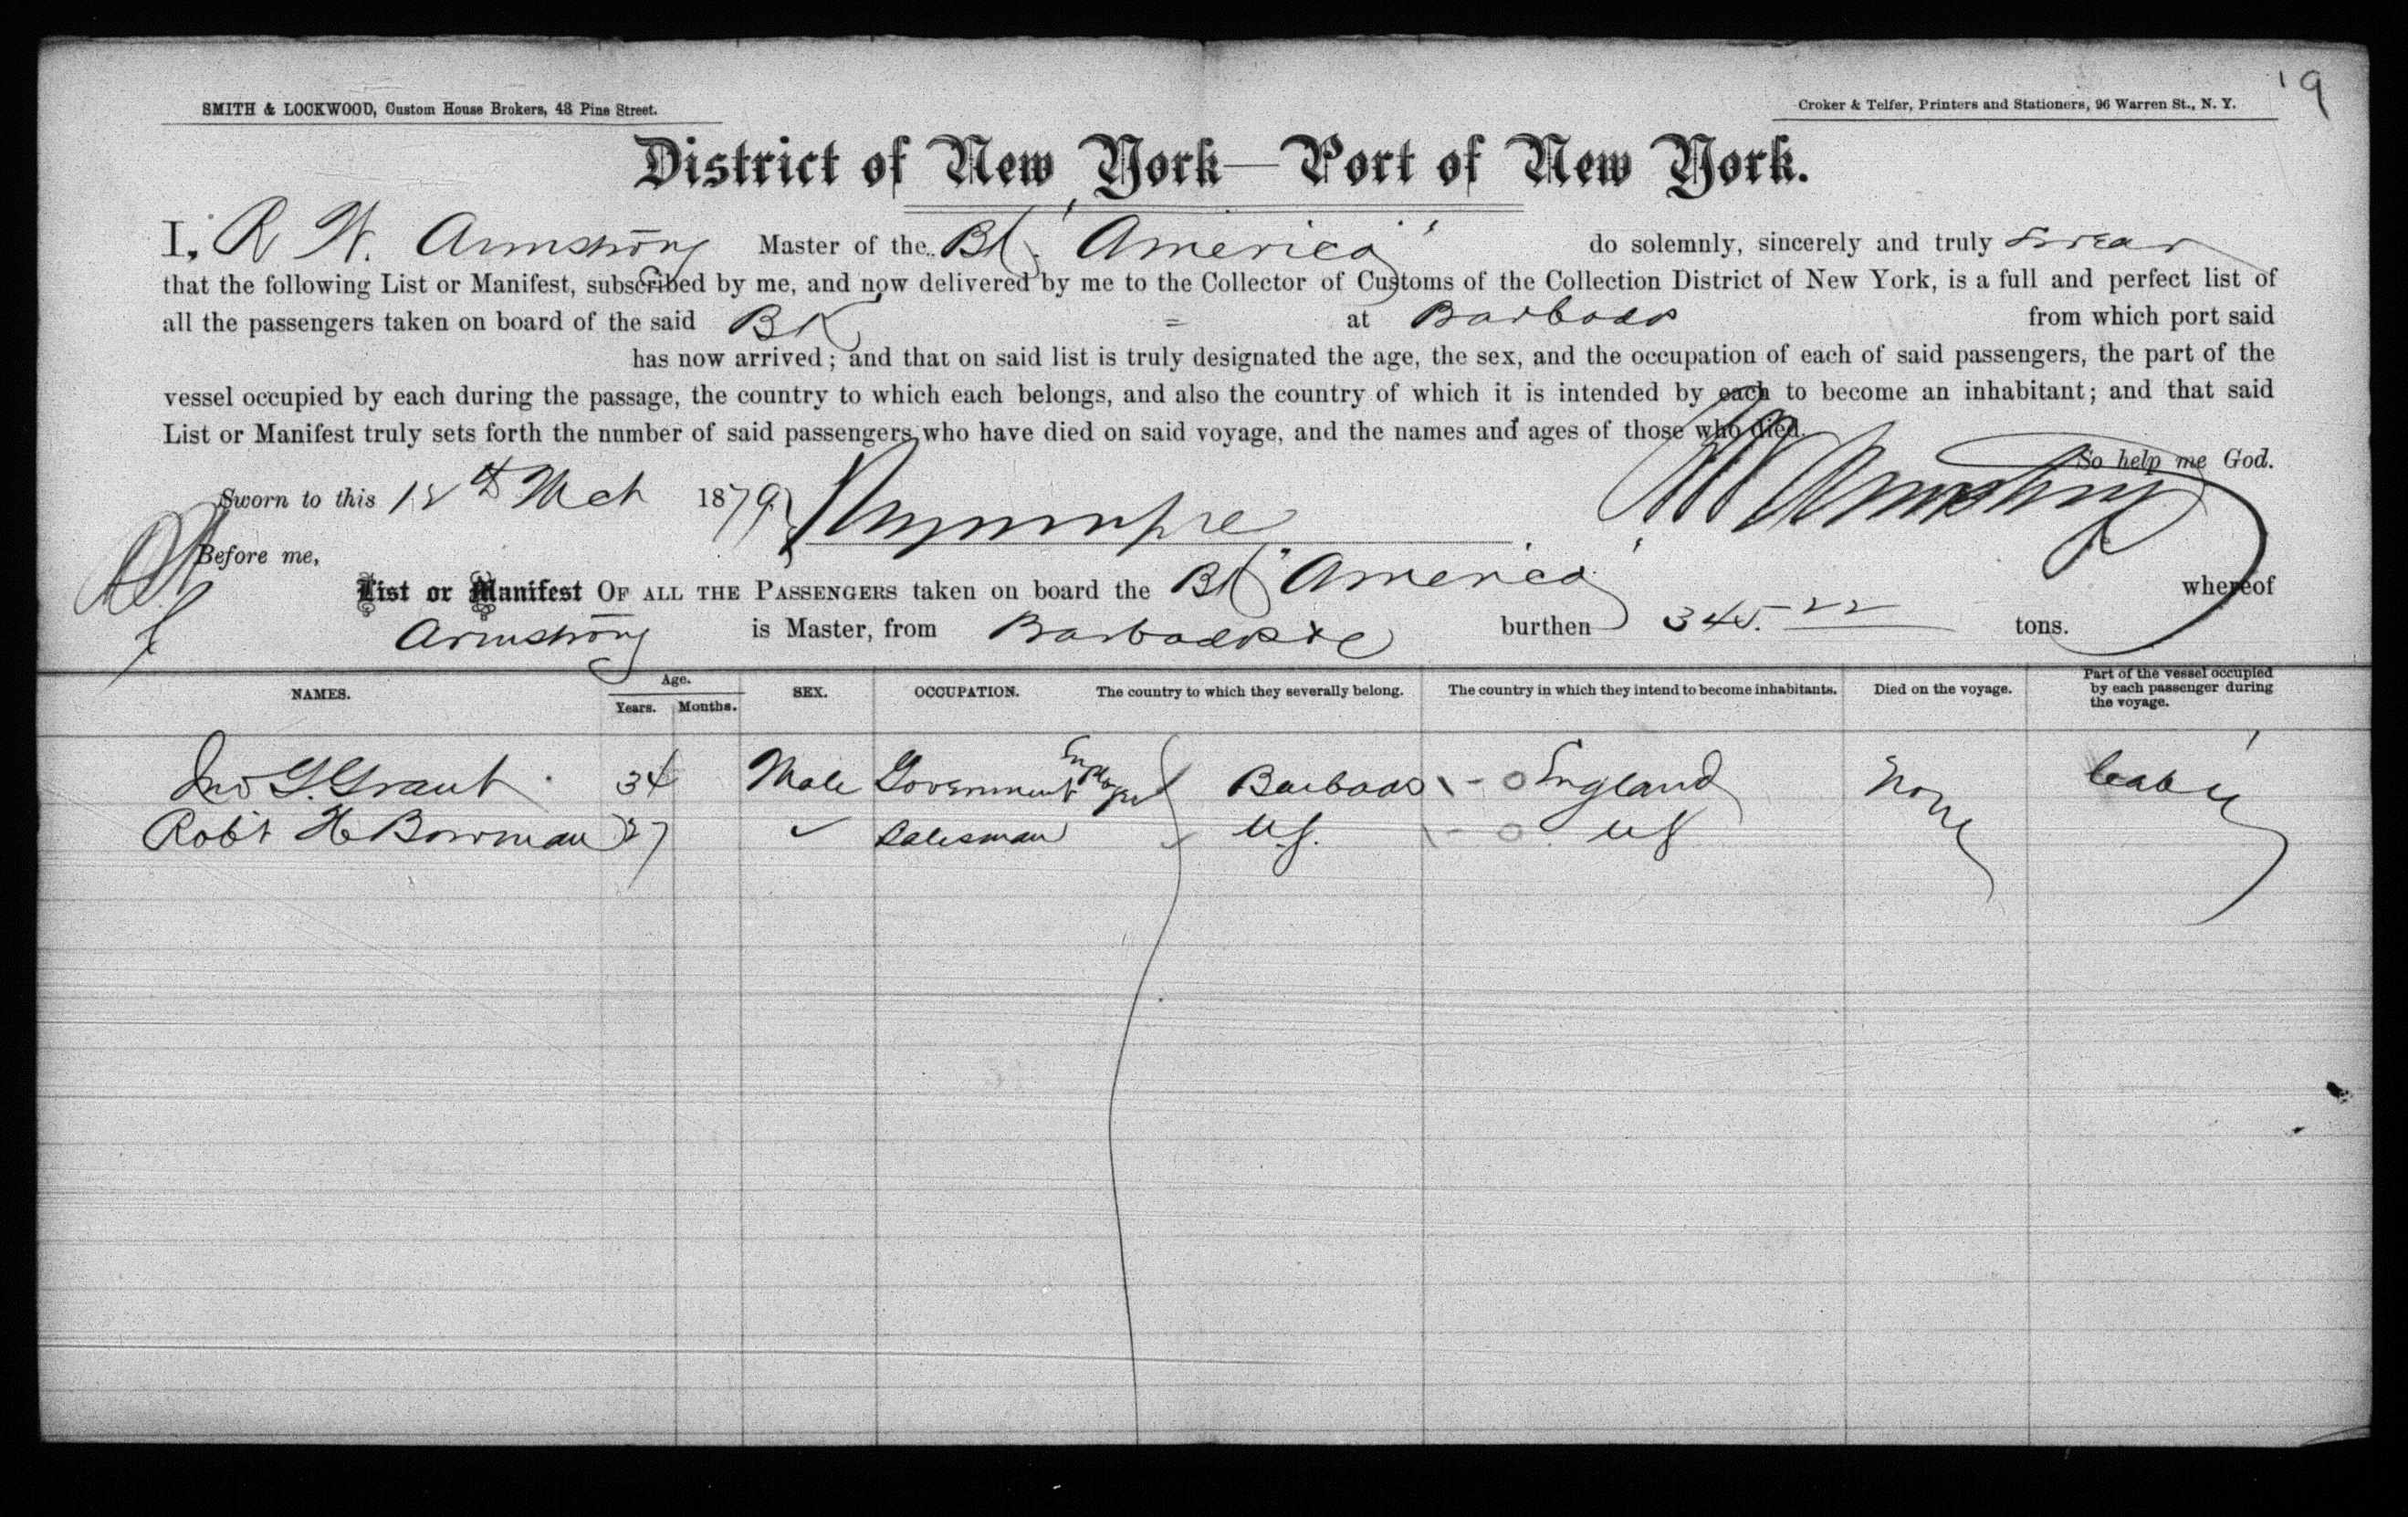 '9
SMITH & LOCKWOOD, Custom House Brokers, 48 Pine Street.
Croker & Telfer, Printers and Stationers, 96 Warren St., N. Y.
District of New York—Port of New York.
I, R W. Armstrong Master of the Bk. "America" do solemnly, sincerely and truly swear
that the following List or Manifest, subscribed by me, and now delivered by me to the Collector of Customs of the Collection District of New York, is a full and perfect list of
all the passengers taken on board of the said BK = at Barbados from which port said
has now arrived; and that on said list is truly designated the age, the sex, and the occupation of each of said passengers, the part of the
vessel occupied by each during the passage, the country to which each belongs, and also the country of which it is intended by each to become an inhabitant; and that said
List or Manifest truly sets forth the number of said passengers who have died on said voyage, and the names and ages of those who died.
So help me God.
Sworn to this 18th Mch 1879 RW Armstrong
Before me,
List or Manifest OF ALL THE PASSENGERS taken on board the Bk "America" whereof
Armstrong is Master, from Barbados burthen 345.22 tons.
NAMES. Age. Years. Months. SEX. OCCUPATION. The country to which they severally belong. The country in which they intend to become inhabitants. Died on the voyage. Part of the vessel occupied by each passenger during the voyage.
Jno G. Grant 34 Male Government Employee Barbados England None Cabin
Rob't H Bowman 27 ✓ Salesman U.S. US